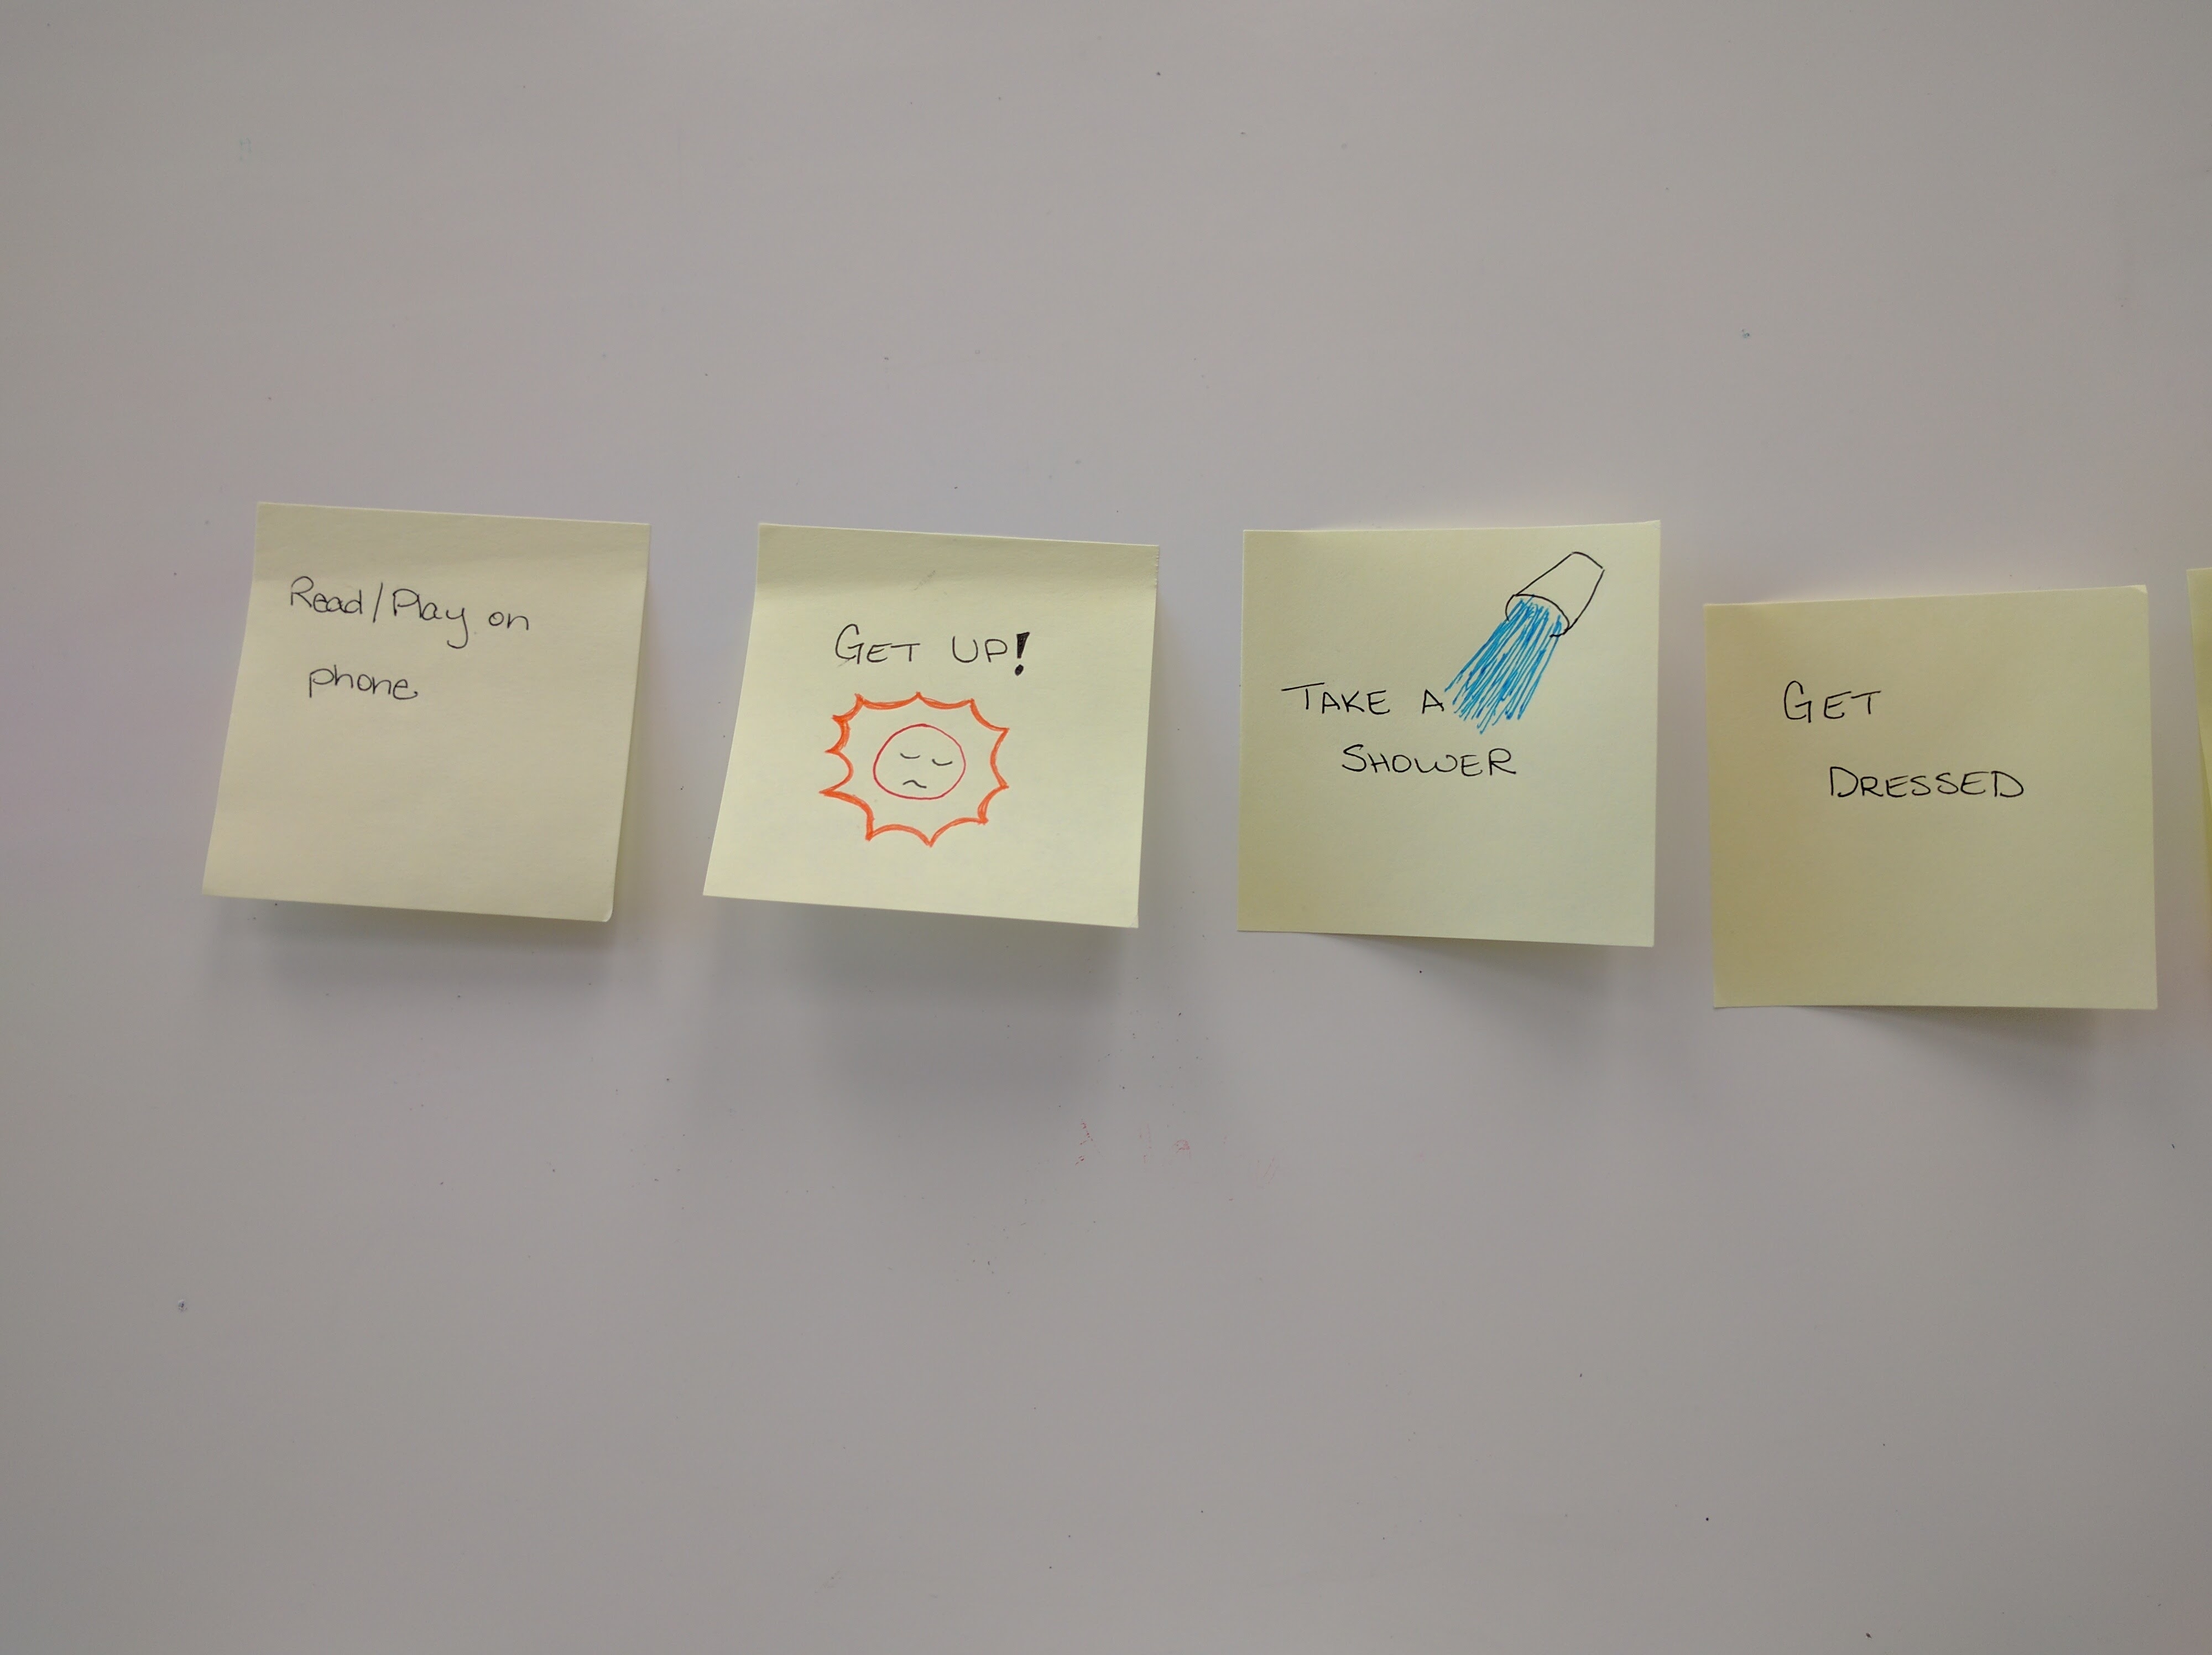 Read/Play on
phone
GET UP!
TAKE A
SHOWER
GET
DRESSED